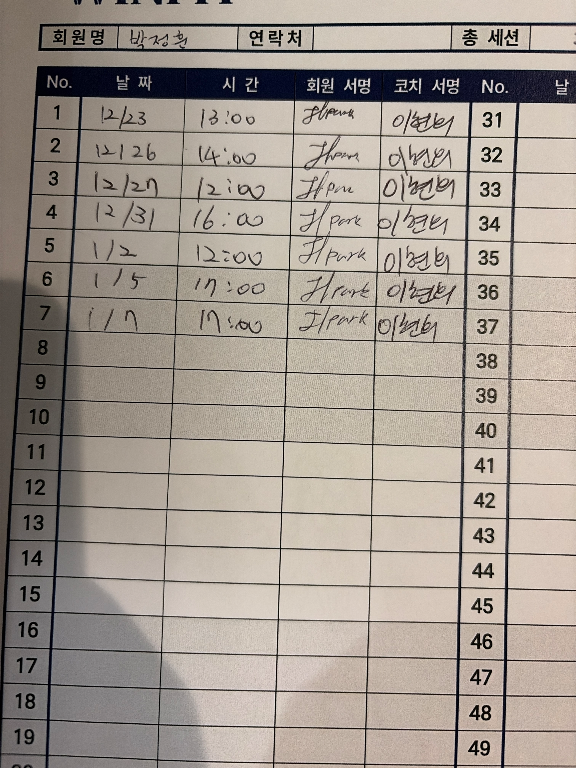 회원명 박정훈 연락처 총 세션
No. 날 짜 시 간 회원 서명 코치 서명 No. 날
1 12/23 13:00 JHpark 이현희 31
2 12/26 14:00 JHpark 이현희 32
3 12/27 12:00 JHpark 이현희 33
4 12/31 16:00 JHpark 이현희 34
5 1/2 12:00 JHpark 이현희 35
6 1/5 17:00 JHpark 이현희 36
7 1/7 17:00 JHpark 이현희 37
8 38
9 39
10 40
11 41
12 42
13 43
14 44
15 45
16 46
17 47
18 48
19 49